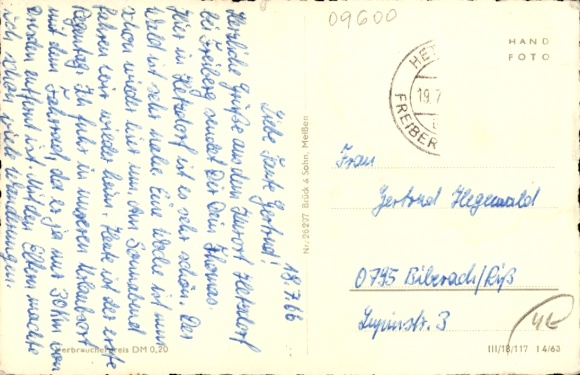 09600
18.7.66
Liebe Tante Gertrud!
Herzliche Grüße aus dem Kurort Hetzdorf
bei Freiberg sendet Dir Dein Thomas.
Hier in Hetzdorf ist es sehr schön. Der
Wald ist sehr nahe. Eine Woche ist nun
schon wieder rum. Am Sonnabend
fahren wir wieder heim. Heute ist der erste
Regentag. Ich fuhr in unseren Urlaubsort
mit dem Fahrrad, da es ja nur 30 km von
Dresden entfernt ist. Mit den Eltern machte
ich schon viele Wanderungen.
Verbraucherpreis DM 0,20
Nr. 26237 Brück & Sohn, Meißen
HAND
FOTO
HE
19.7
FREIBER
Frau
Gertrud Hegewald
0795 Biberach/Riß
Lupinstr. 3
III/18/117 I 4/63